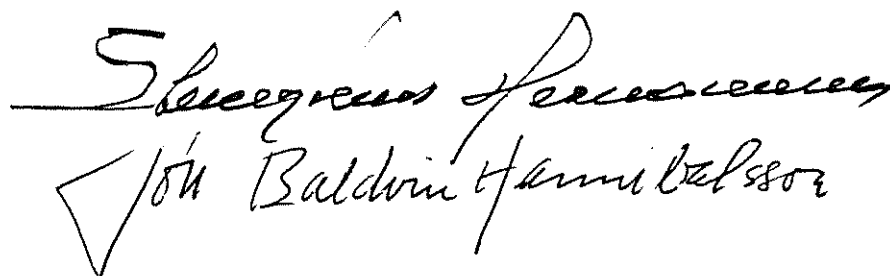 Steingrímur Hermannsson
Jón Baldvin Hannibalsson